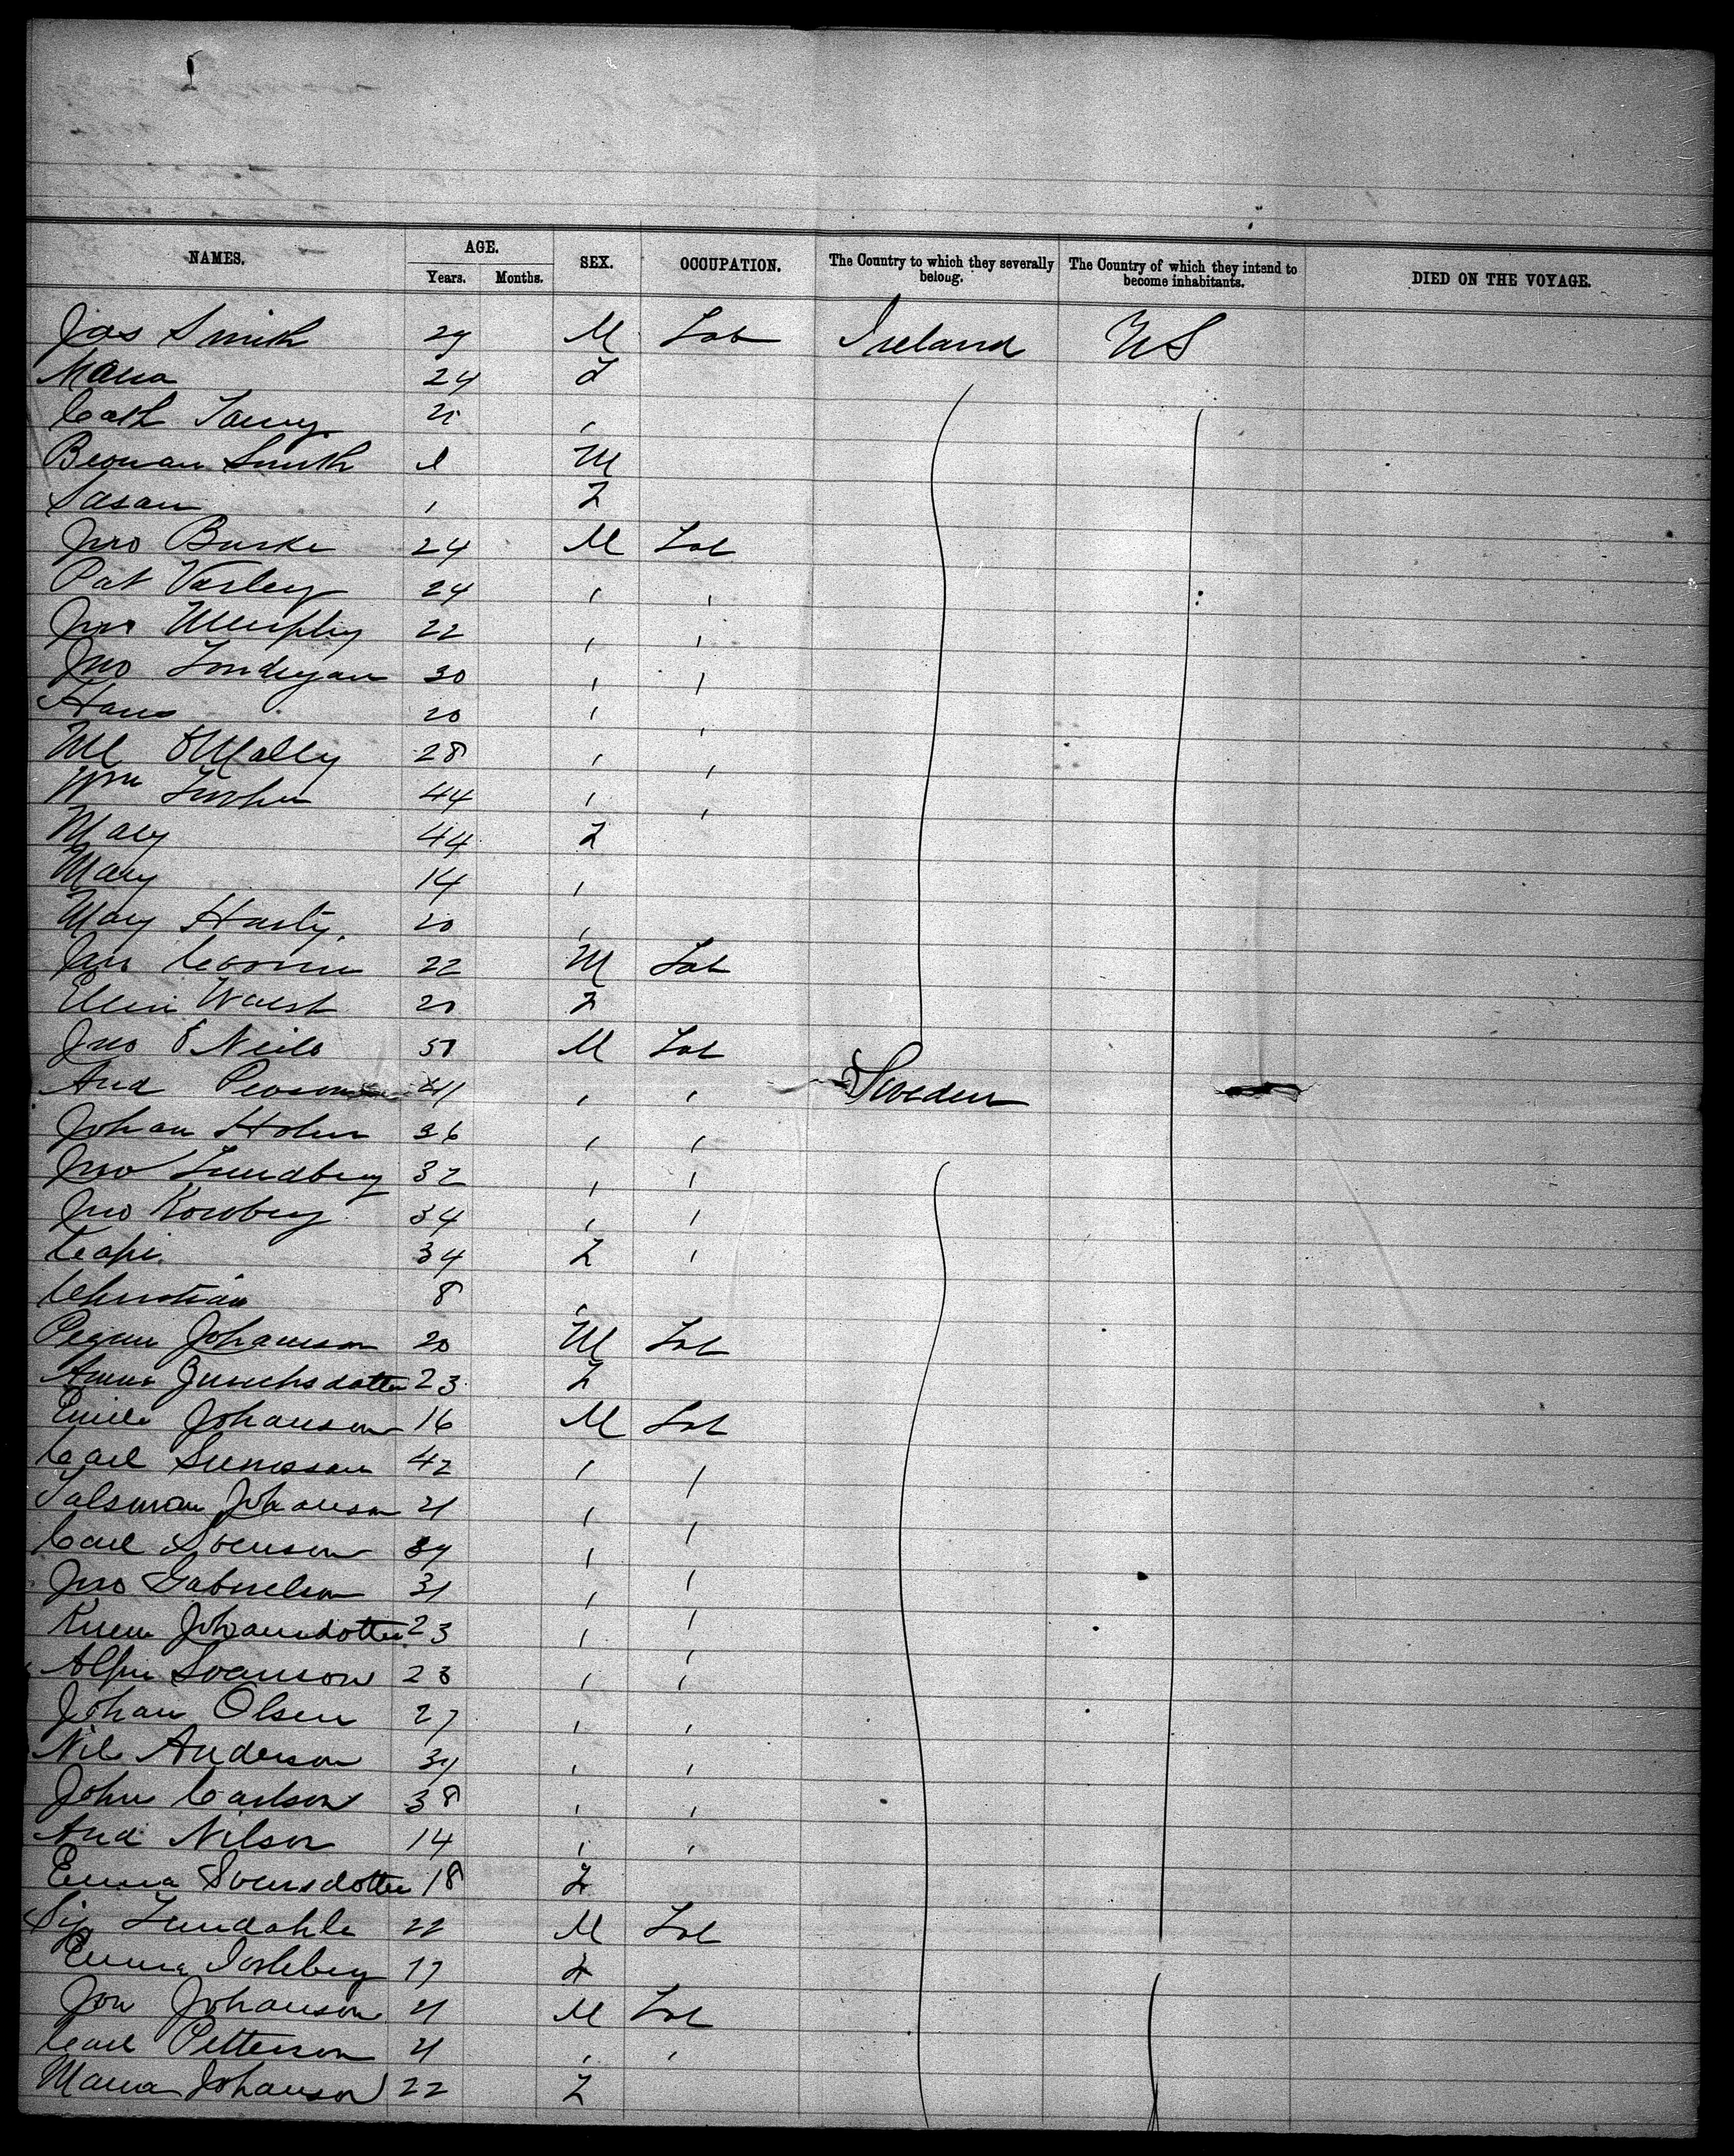 NAMES. AGE. SEX. OCCUPATION. The Country to which they severally belong. The Country of which they intend to become inhabitants. DIED ON THE VOYAGE.
Years. Months.
Jas Smith 29 M Lab Ireland US
Maria 24 F
Cath 21 ,
Smith M
Susan 1 F
Jno Burke 24 M Lab
Pat Varley 24 , ,
Jno Murphy 22 , ,
Jno Londrgan 30 , ,
Hans 20 , ,
Ml O'Mally 28 , ,
Wm 44 , ,
Mary 44 F
Mary 14 ,
Mary Hasty 20 ,
Jno 22 M Lab
Ellen Walsh 20 F
Jno O'Neile 50 M Lab
And Peoson 41 , , Sweden
Johan Holm 36 , ,
Jno Lundberg 32 , ,
Jno 34 , ,
34 F ,
Christian 8 ,
Johanson 20 M Lab
Anna 23 F
Emile Johanson 16 M Lab
Carl 42 , ,
Johanson 21 , ,
Carl Svenson 34 , ,
Jno Gabrielson 31 , ,
Johansdotter 23 , ,
Svanson 23 , ,
Johan Olsen 27 , ,
Nils Anderson 31 , ,
John Carlson 38 , ,
And Nilson 14 , ,
Emma Svensdotter 18 F
Sig Lundahle 22 M Lab
Emma 17 F
Jon Johanson 21 M Lab
Carl Petterson 21 , ,
Maria Johanson 22 F